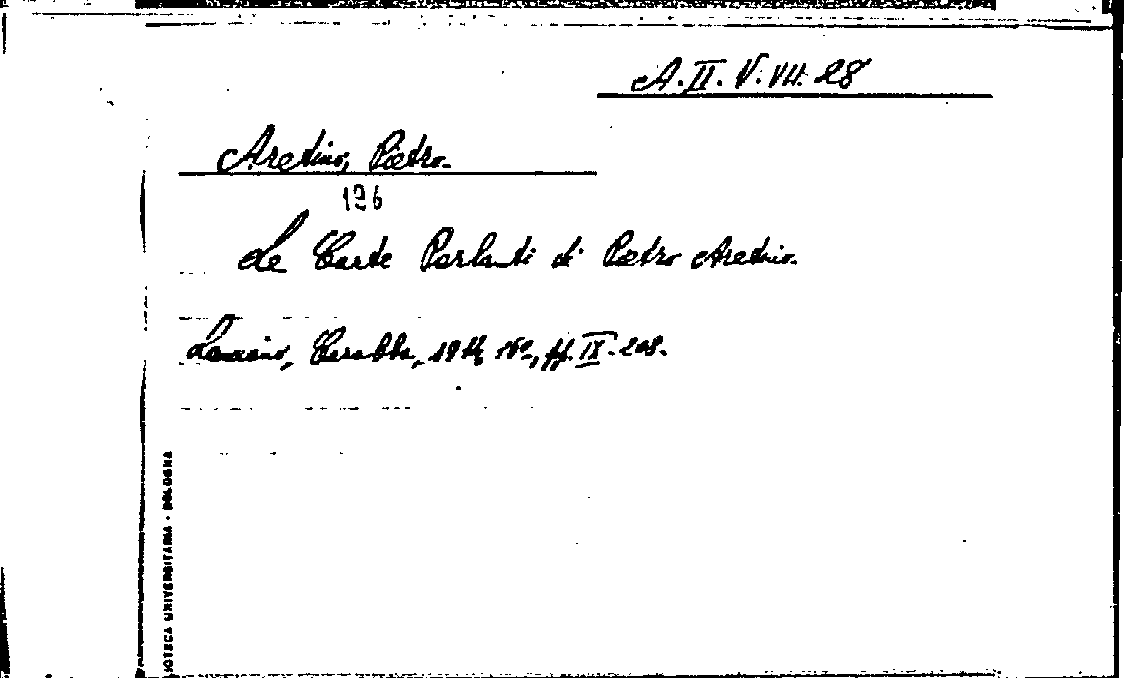 A.II.V.VII.28
Aretino, Pietro.
196
Le Carte Parlanti di Pietro Aretino.
Lanciano, Carabba, 16º, pp. IX-208.
IOTECA UNIVERSITARIA - BOLOGNA